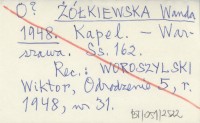 O? ŻÓŁKIEWSKA Wanda
1948. Kapel. — War-
szawa. Ss. 162.
Rec.: WOROSZYLSKI
Wiktor, Odrodzenie 5, r.
1948, nr 31.